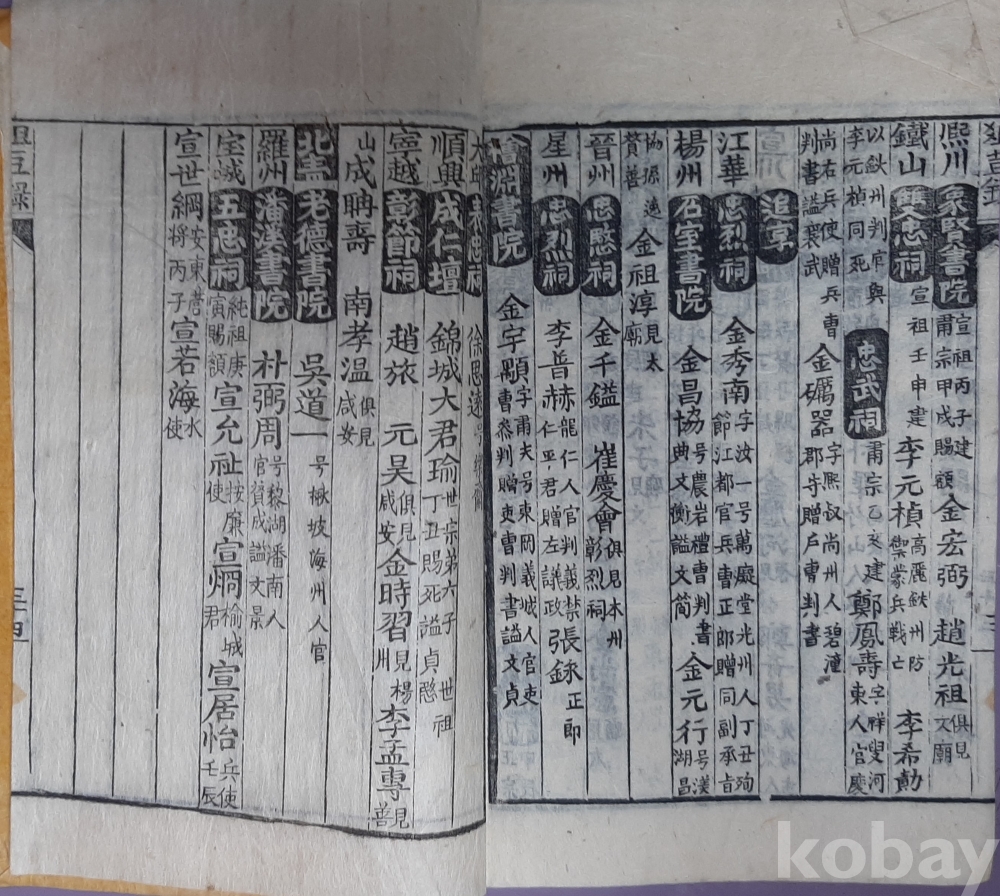 熙川 象賢書院 宣祖丙子建 肅宗甲戌賜額 金宏弼 趙光祖 俱見文廟
鐵山 雙忠祠 宣祖壬申建 李元楨 高麗鉄州防禦蒙兵戰亡 李希勣
以鉄州判官與李元楨同死 忠武祠 肅宗乙亥建 鄭鳳壽 字祥叟河東人官慶
尚右兵使贈兵曹判書謚襄武 金礪器 字熙叔尚州人碧潼郡守贈戶曹判書
宣川 追享
江華 忠烈祠 金秀南 字汝一号萬癡堂光州人丁丑殉節江都官兵曹正郎贈同副承旨
楊州 石室書院 金昌協 号農岩禮曹判書典文衡謚文簡 金元行 号渼湖昌
協孫贊善 遠 金祖淳 見太廟
晉州 忠愍祠 金千鎰 崔慶會 俱見本州彰烈祠
星州 忠烈祠 李普赫 龍仁人官判義禁仁平君贈左議政 張銾 正郎
檜淵書院 金宇顒 字肅夫号東岡義城人官吏曹叅判贈吏曹判書謚文貞
大丘 表忠祠 徐思遠
順興 成仁壇 錦城大君瑜 世宗弟六子世祖丁丑賜死謚貞愍
寧越 彰節祠 趙旅 元昊 俱見咸安 金時習 見楊州 李孟專 見善
山 成聃壽 南孝溫 俱見咸安
北靑 老德書院 吳道一 号楸坡海州人官
羅州 潘溪書院 朴弼周 号黎湖潘南人官賛成謚文景
宝城 五忠祠 純祖庚寅賜額 宣允祉 按廉使 宣炯 榆城君 宣居怡 兵使壬辰
宣世綱 安東營将丙子 宣若海 水使
俎豆錄
三十四